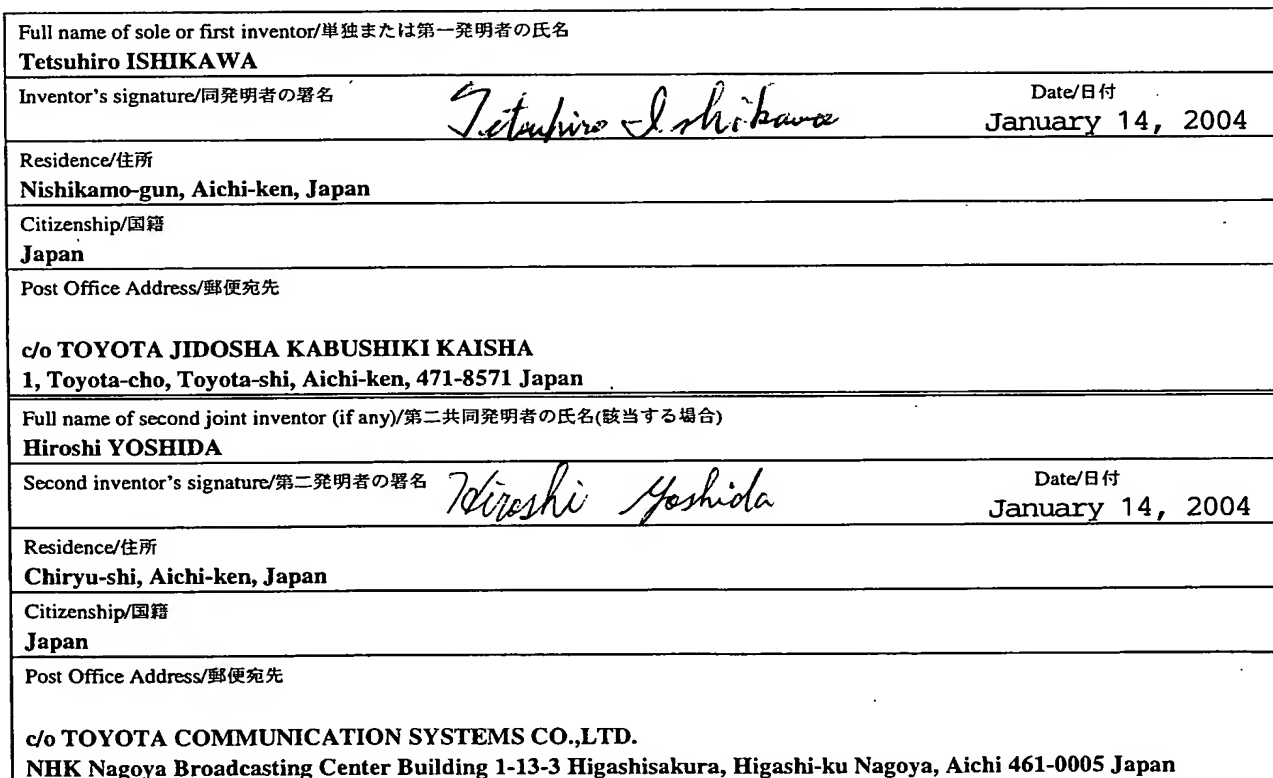 Full name of sole or first inventor/単独または第一発明者の氏名
Tetsuhiro ISHIKAWA
Inventor's signature/同発明者の署名 Tetsuhiro Ishikawa Date/日付
January 14, 2004
Residence/住所
Nishikamo-gun, Aichi-ken, Japan
Citizenship/国籍
Japan
Post Office Address/郵便宛先
c/o TOYOTA JIDOSHA KABUSHIKI KAISHA
1, Toyota-cho, Toyota-shi, Aichi-ken, 471-8571 Japan
Full name of second joint inventor (if any)/第二共同発明者の氏名(該当する場合)
Hiroshi YOSHIDA
Second inventor's signature/第二発明者の署名 Hiroshi Yoshida Date/日付
January 14, 2004
Residence/住所
Chiryu-shi, Aichi-ken, Japan
Citizenship/国籍
Japan
Post Office Address/郵便宛先
c/o TOYOTA COMMUNICATION SYSTEMS CO.,LTD.
NHK Nagoya Broadcasting Center Building 1-13-3 Higashisakura, Higashi-ku Nagoya, Aichi 461-0005 Japan